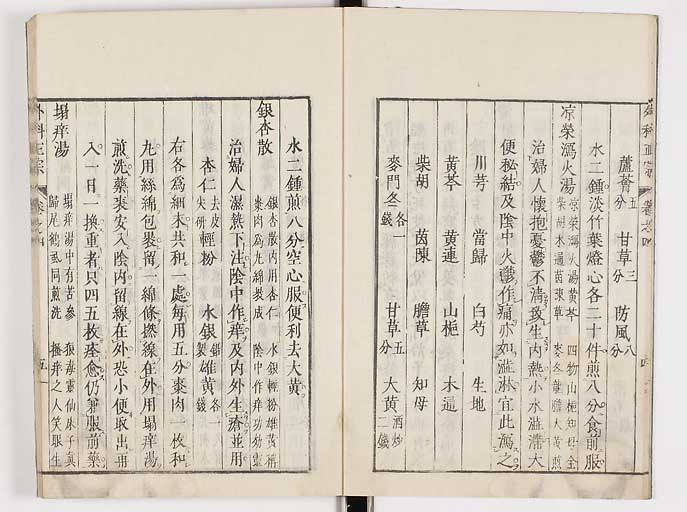 蘆薈五分 甘草三分 防風八分
水二鍾淡竹葉燈心各二十件煎八分食前服
涼榮瀉火湯 涼榮瀉火湯黃芩 四物山梔知母全
柴胡木通茵陳草 麥冬車膽大黃煎
治婦人懷抱憂鬱不清致生內熱小水澁滯大
便秘結及陰中火鬱作痛亦如澁淋宜此瀉之
川芎 當歸 白芍 生地
黃芩 黃連 山梔 木通
柴胡 茵陳 膽草 知母
麥門冬各一錢 甘草五分 大黃酒炒二錢
水二鍾煎八分空心服便利去大黃
銀杏散 銀杏散內用杏仁 水銀輕粉雄黃稱
棗肉爲丸綿裹成 陰中作痒功効靈
治婦人濕熱下注陰中作痒及內外生瘡並用
杏仁去皮尖研 輕粉 水銀鉛製 雄黃各一錢
右各爲細末共和一處每用五分棗肉一枚和
丸用絲綿包裹留一綿條撚線在外用塌痒湯
煎洗藥裹安入陰內留線在外恐小便取出再
入一日一換重者只四五枚痊愈仍兼服前藥
塌痒湯 塌痒湯中有苦參 狼毒靈仙床子眞
歸尾鶴虱同煎洗 搔痒之人笑眼生
外科正宗 卷之四 五